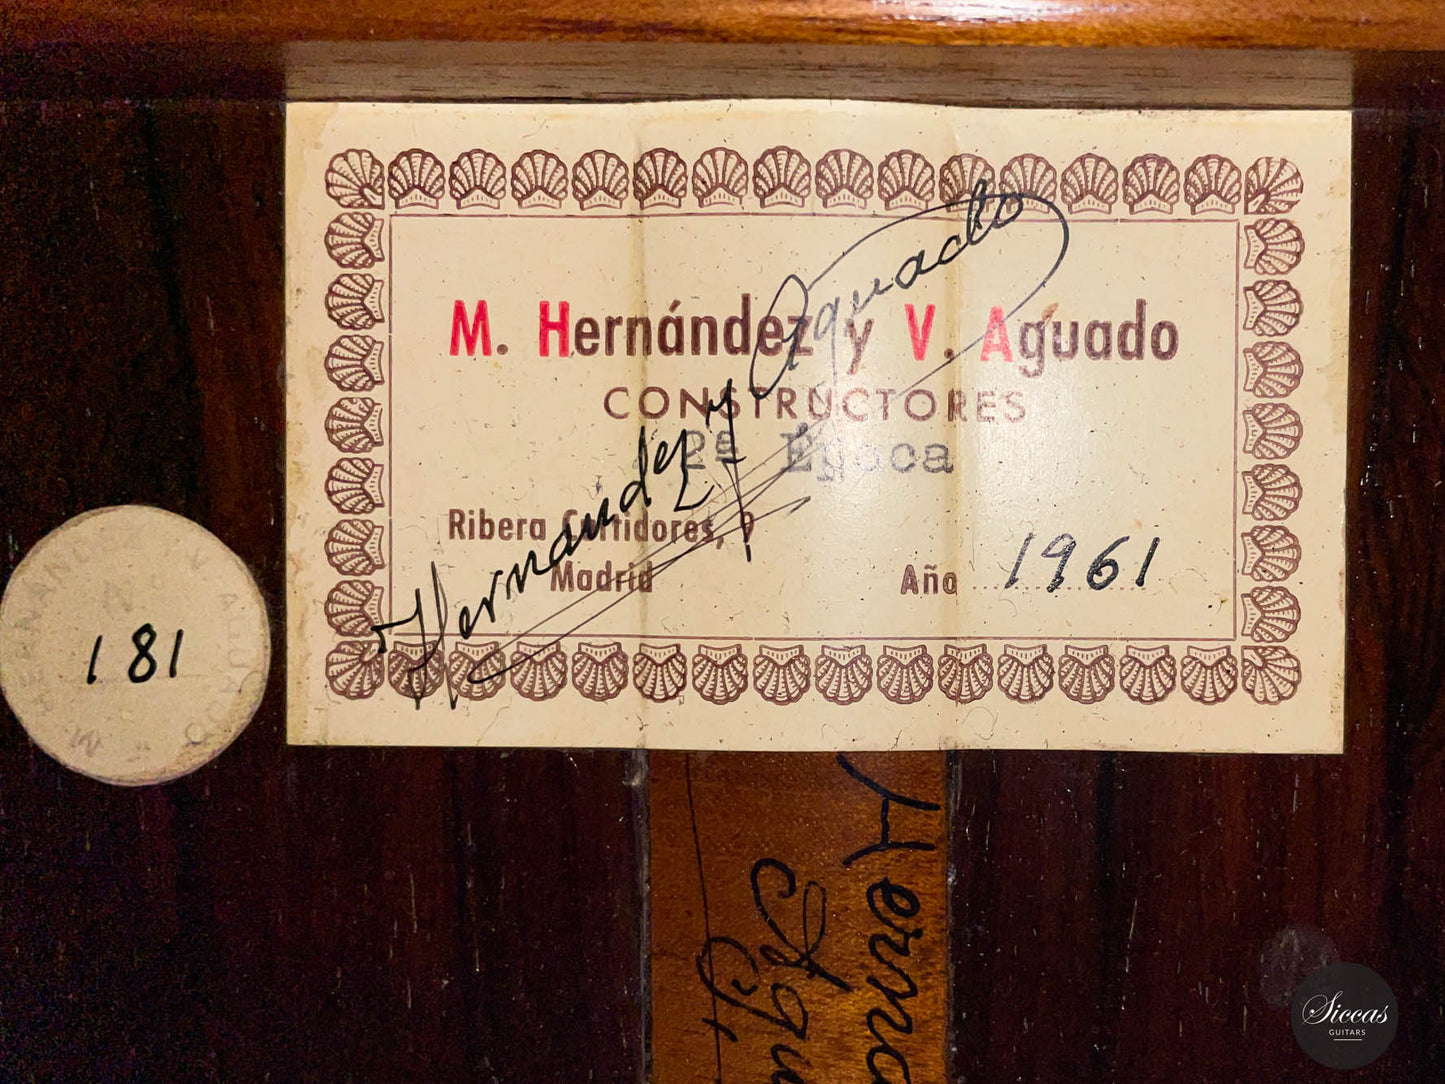 M. Hernández y V. Aguado
CONSTRUCTORES
2ª Época
Ribera Curtidores, 9
Madrid
Año 1961
Hernandez y Aguado
M. HERNANDEZ Y V. AGUADO
181
Herna
y Agu
Siccas
GUITARS